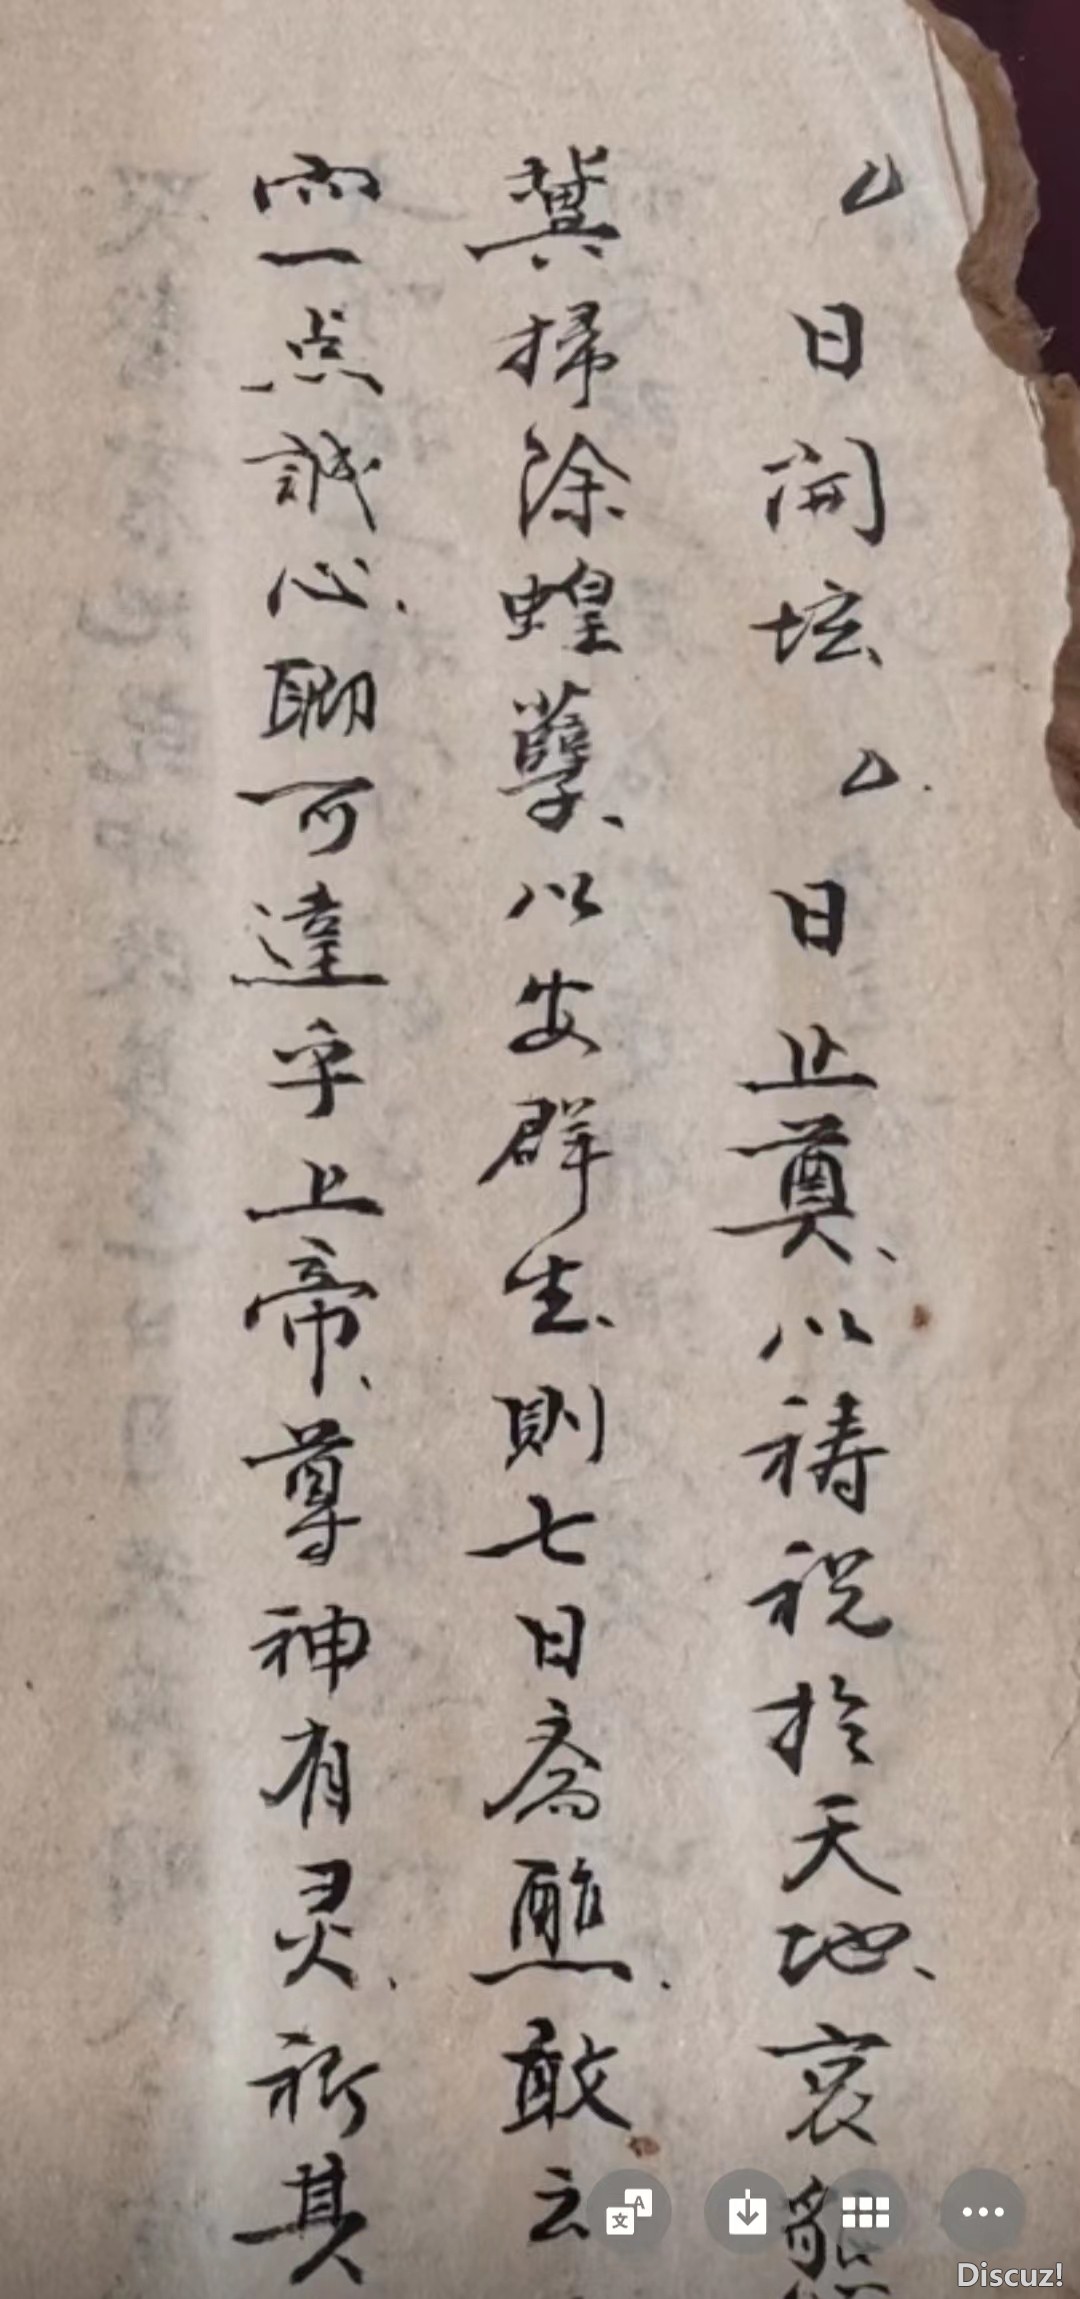 厶日開坛、厶日止奠、以祷祝於天地、哀
冀掃除蝗孽、以安群生、則七日斋醮.敢云
而一点誠心.聊可達乎上帝、尊神有灵.祈其
Discuz!